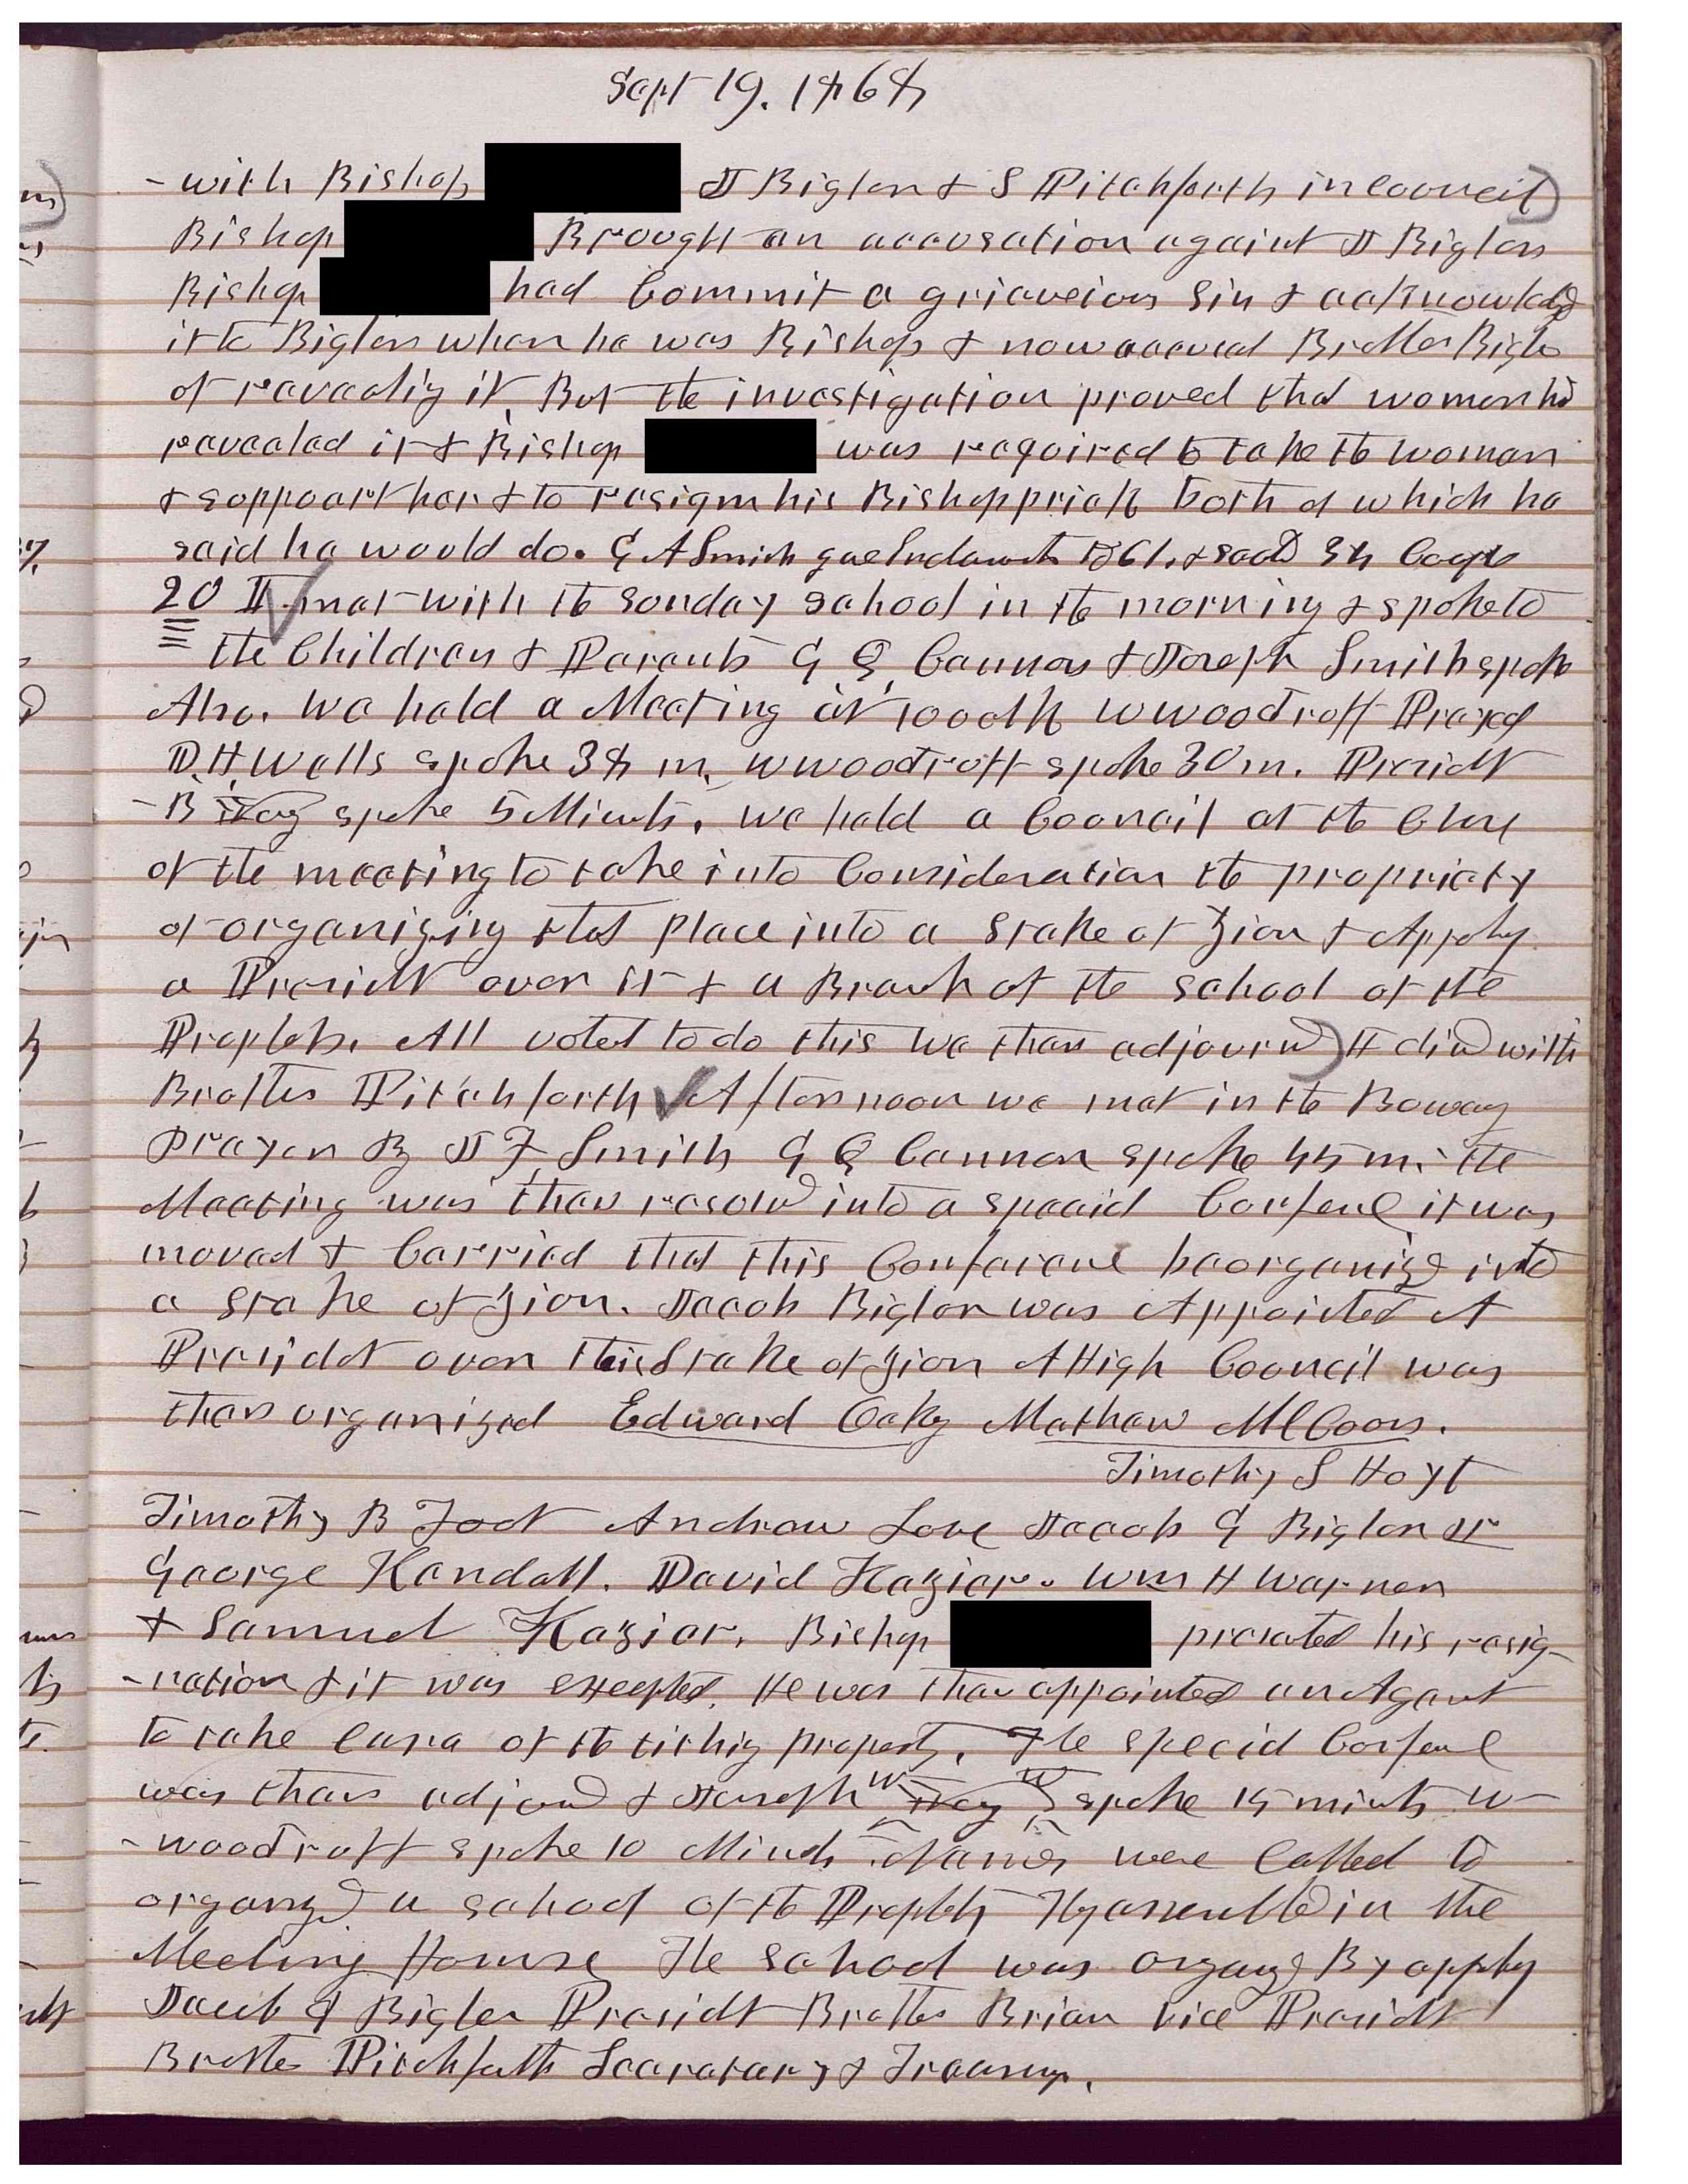 Sept 19. 1868
- with Bishop J Bigler & S Pitchforth in Councit)
Bishop Brough an accusation againt J Bigler
Bishop had Commit a grieveious Sin & acknowledg
it to Bigler when he was Bishop & now accused Brother Bigler
of reveeling it, But the investigation proved that women had
revealed it & Bishop was required to take the woman
& soppoart her & to resign his Bishopprick both of which he
said he would do. G A Smith gave 34
20 I met with the Sunday School in the morning & spoke to
the Children & Parents G Q Cannon & Joseph Smith spoke
Also. We held a Meeting at 10 oclk W Woodruff Prayed
D. H. Wells spoke 38 m. W Woodruff spoke 30 m. Presidt
- B Young spoke 5 Minuts. We held a Council at the Close
of the meeting to take into Consideration the propriety
of organizing that place into a Stake of Zion & Apptg
a Presidt over it & a Branch of the School of the
Prophets. All voted to do this we then adjournd) I dind with
Brother Pitchforth Afternoon we met in the Bowery
Prayer By J F Smith G Q Cannon spoke 45 m. The
Meeting was then resolvd into a special Confere it was
moved & Carried that this Conference be organized into
a Stake of Zion. Jacob Bigler was Appointed A
Presidet over this Stake of Zion A High Council was
then organized Edward Oaky Mathew McCoon.
Timothy S Hoyt
Timothy B Foot Andrew Love Jacob G Bigler Jr
George Kendall. David Kazier. Wm H Warner
& Samuel Kazier. Bishop preseted his resig-
-nation & it was excepted. He was then appointed an Agent
to take Care of the tithig property. The specid Confere
was then adjond & Joseph W Young spoke 15 minuts W
- woodruff spoke 10 Minuts. Names were Called to
organized a school of the Prophets They assembled in the
Meeting House The School was organgd By apptg
Jacob G Bigler Presidt Brother Brian Vice Presidt
Brother Pitchforth Secretary & Treasurer.